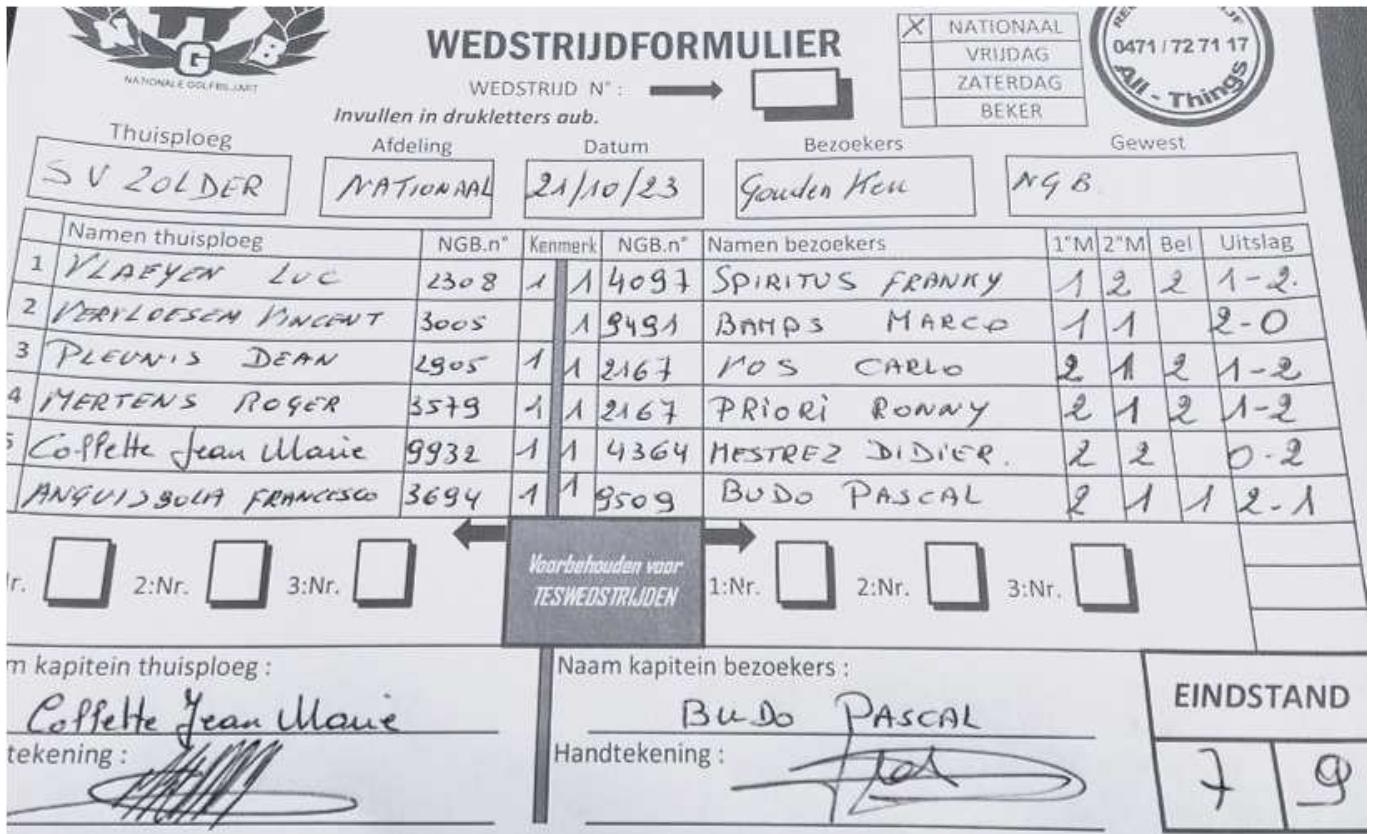 NGB
NATIONALE GOLFBILJART
WEDSTRIJDFORMULIER
WEDSTRIJD N° :
Invullen in drukletters aub.
X NATIONAAL
VRIJDAG
ZATERDAG
BEKER
0471 / 72 71 17
All - Things
Thuisploeg Afdeling Datum Bezoekers Gewest
SV ZOLDER NATIONAAL 21/10/23 Gouden Keu NGB
Namen thuisploeg NGB.n° Kenmerk NGB.n° Namen bezoekers 1°M 2°M Bel Uitslag
1 VLAEYEN LUC 2308 1 1 4097 SPIRITUS FRANKY 1 2 2 1-2.
2 VERVLOESEM VINCENT 3005 1 9491 BAMPS MARCO 1 1 2-0
3 PLEUNIS DEAN 2905 1 1 2167 VOS CARLO 2 1 2 1-2
4 MERTENS ROGER 3579 1 1 2167 PRIORI RONNY 2 1 2 1-2
Coffette Jean Marie 9932 1 1 4364 MESTREZ DIDIER. 2 2 0-2
ANGUISSOLA FRANCESCO 3694 1 1 9509 BUDO PASCAL 2 1 1 2-1
2:Nr. 3:Nr. Voorbehouden voor TESWEDSTRIJDEN 1:Nr. 2:Nr. 3:Nr.
kapitein thuisploeg : Naam kapitein bezoekers :
Coffette Jean Marie BUDO PASCAL
tekening : Handtekening :
EINDSTAND
7 9